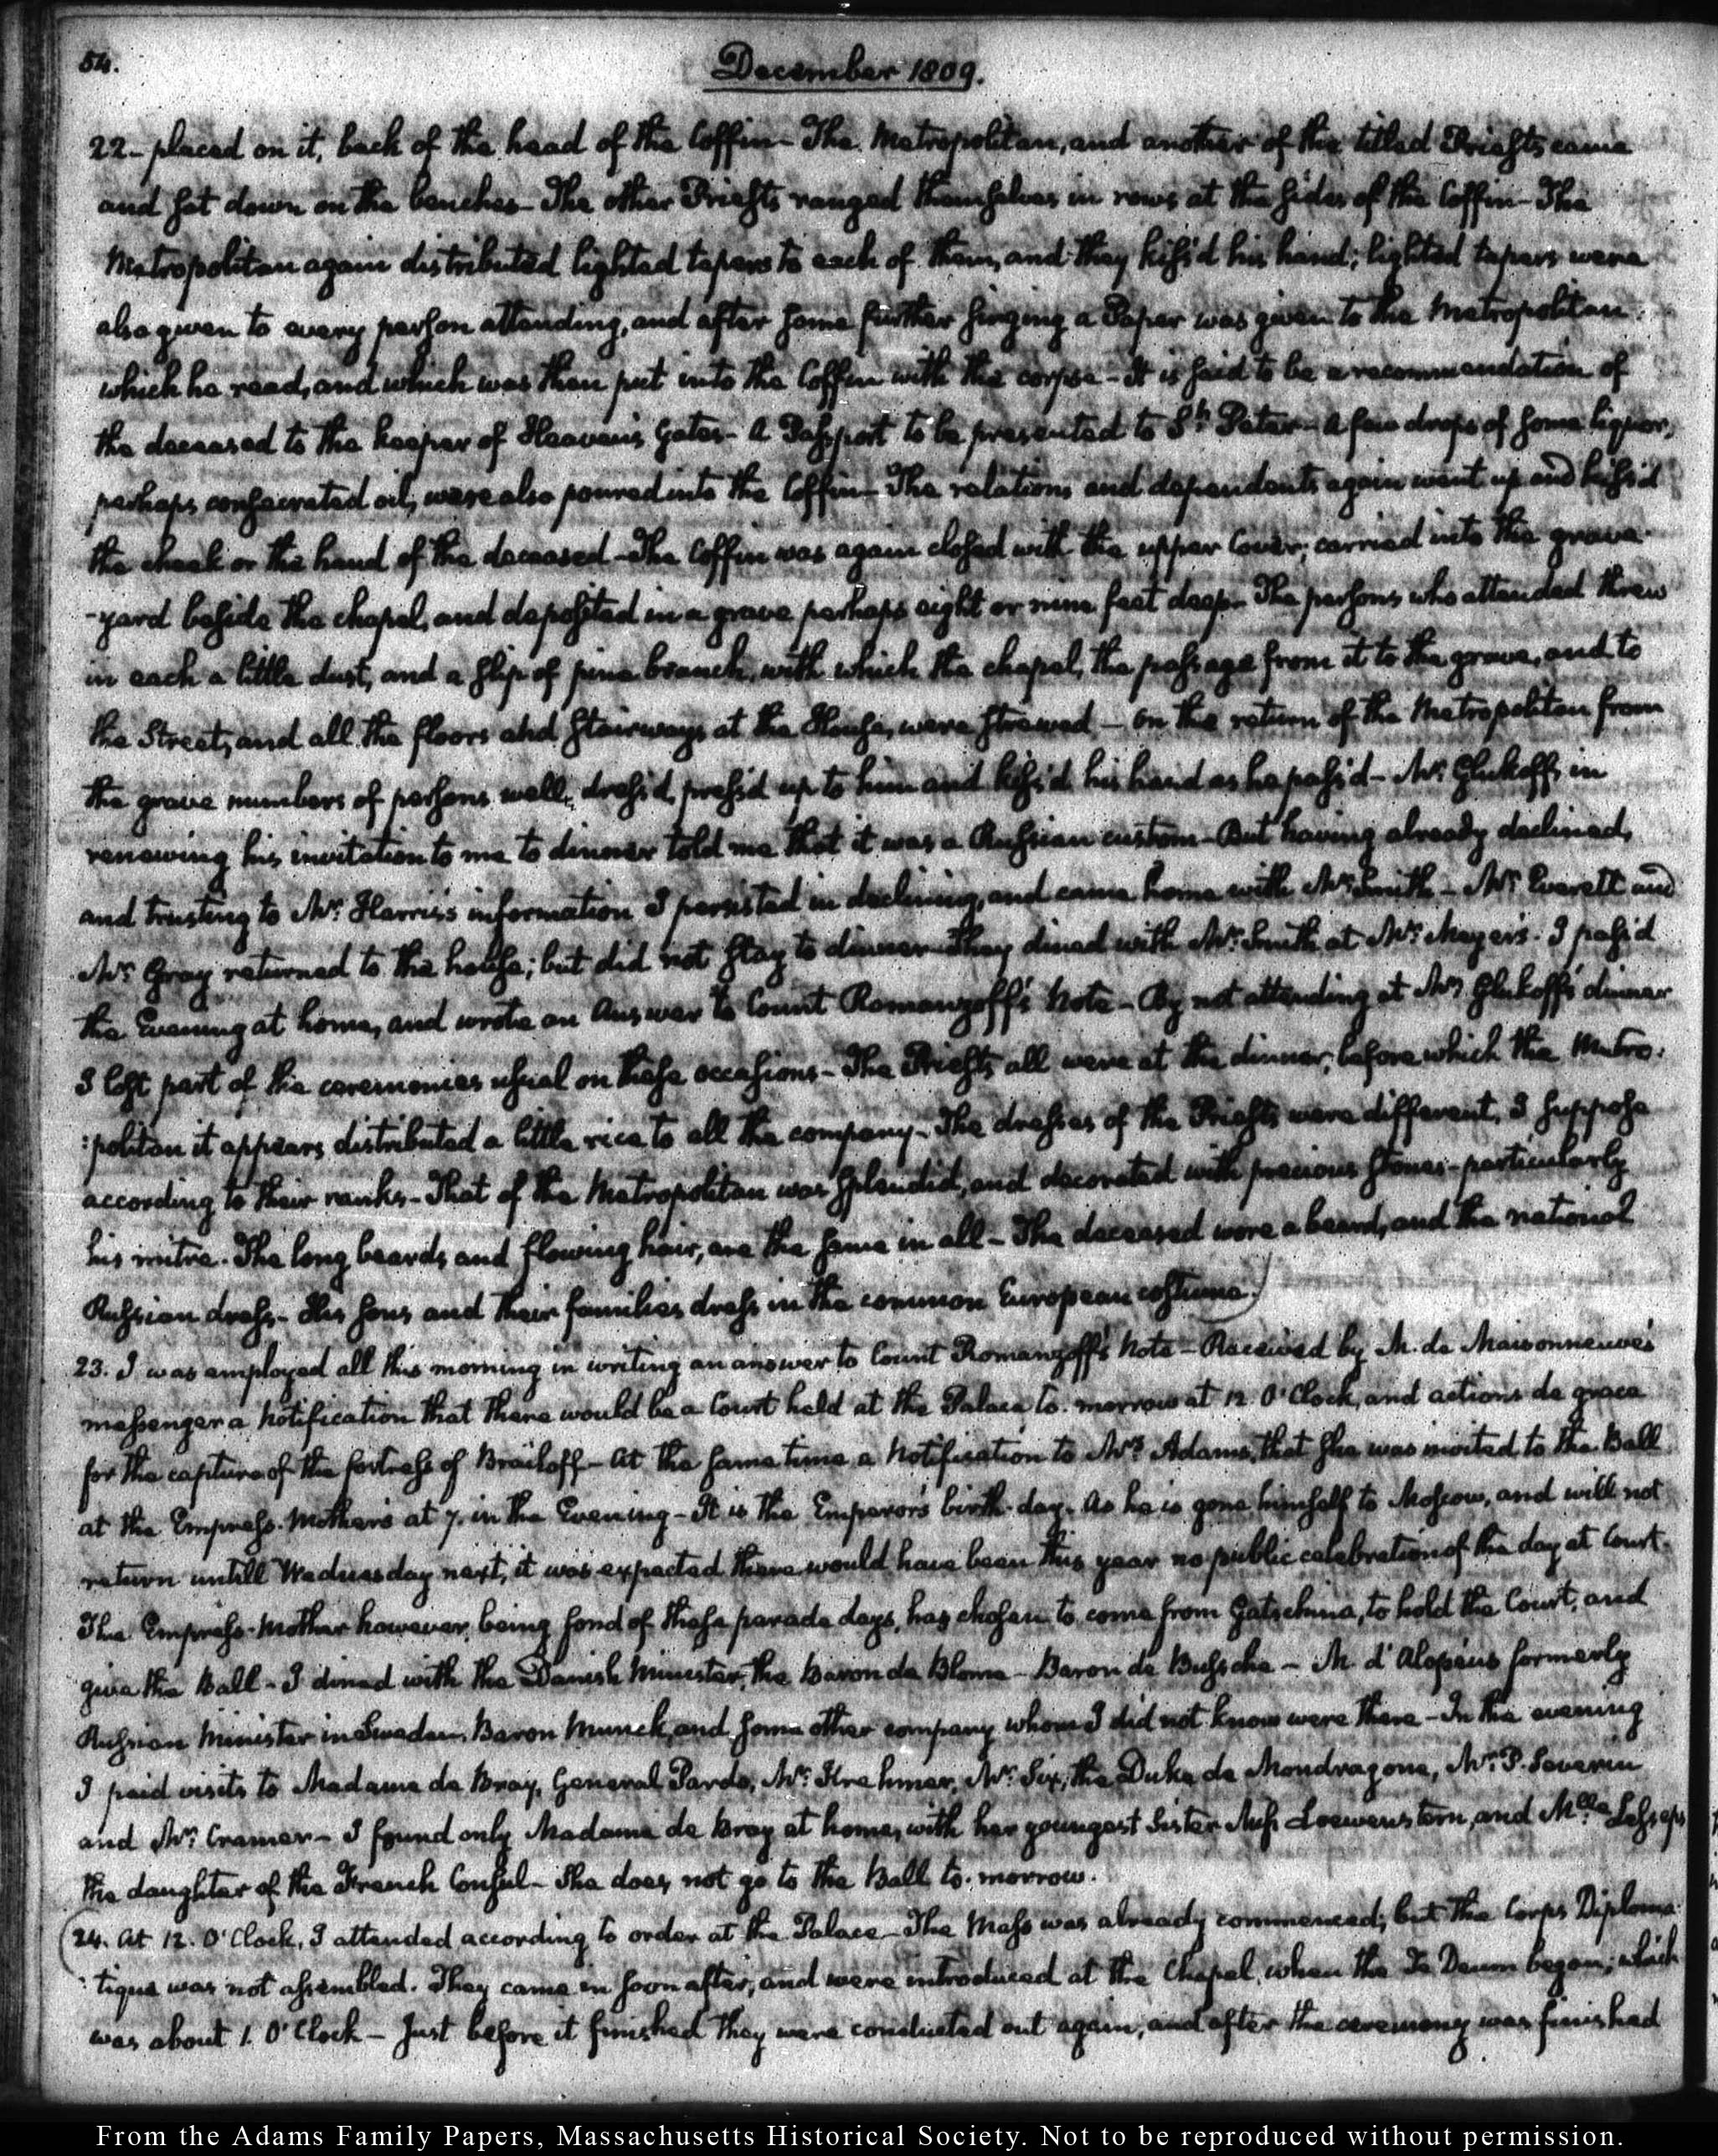 54.
December 1809.
22- placed on it, back of the head of the Coffin- The Metropolitan, and another of the titled Priests came
and sat down on the benches- The other Priests ranged themselves in rows at the sides of the Coffin- The
Metropolitan again distributed lighted tapers to each of them, and they kiss'd his hand; lighted tapers were
also given to every person attending, and after some further singing a Paper was given to the Metropolitan
which he read, and which was then put into the Coffin with the corpse- It is said to be a recommendation of
the deceased to the keeper of Heaven's Gates- A Passport to be presented to St. Peter- A few drops of some liquor,
perhaps consecrated oil, were also poured into the Coffin- The relations and dependents again went up and kiss'd
the cheek or the hand of the deceased- The Coffin was again closed with the upper Cover; carried into the grave-
-yard beside the chapel, and deposited in a grave perhaps eight or nine feet deep- The persons who attended threw
in each a little dust, and a slip of pine branch, with which the chapel, the passage from it to the grave, and to
the Street, and all the floors and Stairways at the House, were strewed- On the return of the Metropolitan from
the grave numbers of persons well dress'd, press'd up to him and kiss'd his hand as he pass'd- Mr. Glukoff, in
renewing his invitation to me to dinner told me that it was a Russian custom- But having already declined,
and trusting to Mr. Harris's information I persisted in declining, and came home with Mr. Smith- Mr. Everett and
Mr. Gray returned to the house; but did not stay to dinner- They dined with Mr. Smith at Mr. Meyer's. I pass'd
the Evening at home, and wrote an Answer to Count Romanzoff's Note- By not attending at Mr. Glukoff's dinner
I lost part of the ceremonies usual on these occasions- The Priests all were at the dinner, before which the Metro:
:politan it appears distributed a little rice to all the company- The dresses of the Priests were different, I suppose
according to their ranks- That of the Metropolitan was splendid, and decorated with precious stones- particularly
his mitre. The long beards and flowing hair, are the same in all- The deceased wore a beard, and the national
Russian dress- His sons and their families dress in the common European costume.)
23. I was employed all this morning in writing an answer to Count Romanzoff's Note- Received by M. de Maisonneuve's
messenger a Notification that there would be a Court held at the Palace to-morrow at 12. O'Clock, and actions de grace
for the capture of the fortress of Brailoff- At the same time a Notification to Mrs. Adams, that she was invited to the Ball
at the Empress-Mother's at 7. in the Evening- It is the Emperor's birth-day. As he is gone himself to Moscow, and will not
return untill Wednesday next, it was expected there would have been this year no public celebration of the day at Court.
The Empress-Mother however, being fond of these parade days, has chosen to come from Gatschina, to hold the Court, and
give the Ball- I dined with the Danish Minister, the Baron de Blome- Baron de Bussche- M. d'Alopeus formerly
Russian Minister in Sweden, Baron Munck, and some other company whom I did not know were there- In the evening
I paid visits to Madame de Bray, General Pardo, Mr. Krehmer, Mr. Six, the Duke de Mondragone, Mr. P. Severin
and Mr. Cramer- I found only Madame de Bray at home, with her youngest Sister Miss Loewenstern, and Mlle. Lesseps
the daughter of the French Consul- She does not go to the Ball to-morrow.
(24. At 12. O'Clock, I attended according to order at the Palace- The Mass was already commenced; but the Corps Diploma:
:tique was not assembled. They came in soon after, and were introduced at the Chapel, when the Te Deum began; which
was about 1. O'Clock- Just before it finished they were conducted out again, and after the ceremony was finished
From the Adams Family Papers, Massachusetts Historical Society. Not to be reproduced without permission.